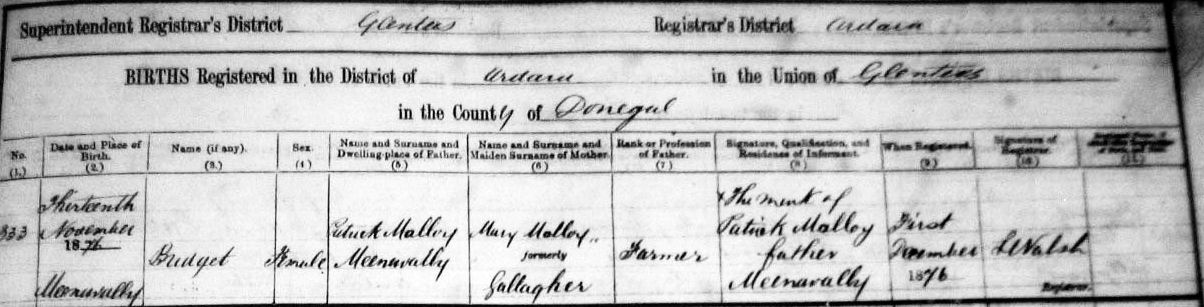 Superintendent Registrar's District Glenties Registrar's District Ardara
BIRTHS Registered in the District of Ardara in the Union of Glenties
in the County of Donegal
No. (1.) Date and Place of Birth. (2.) Name (if any). (3.) Sex. (4.) Name and Surname and Dwelling-place of Father. (5.) Name and Surname and Maiden Surname of Mother. (6.) Rank or Profession of Father. (7.) Signature, Qualification, and Residence of Informant. (8.) When Registered. (9.) Signature of Registrar. (10.) (11.)
333
Thirteenth
November
1876
Meenavally
Bridget
Female
Patrick Malloy
Meenavally
Mary Malloy
formerly
Gallagher
Farmer
X The mark of
Patrick Malloy
father
Meenavally
First
December
1876
Walsh
Registrar.